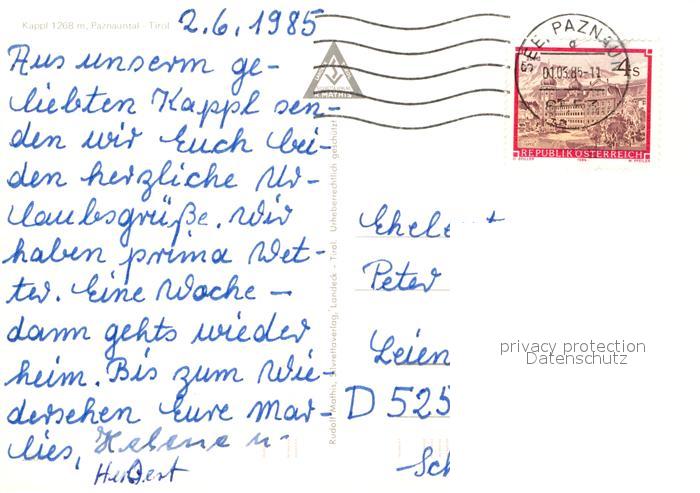 Kappl 1268 m, Paznauntal - Tirol
2.6.1985
Aus unserm ge-
liebten Kappl sen-
den wir Euch bei-
den herzliche Ur-
laubsgrüße. Wir
haben prima Wet-
ter. Eine Woche –
dann gehts wieder
heim. Bis zum Wie-
dersehen Eure Mar-
lies, Helene u.
Herbert
R. MATHIS
Rudolf Mathis, Silvrettaverlag, Landeck - Tirol. Urheberrechtlich geschützt
SEE, PAZNAUN
4s
REPUBLIK ÖSTERREICH
Peter
D 525
privacy protection
Datenschutz